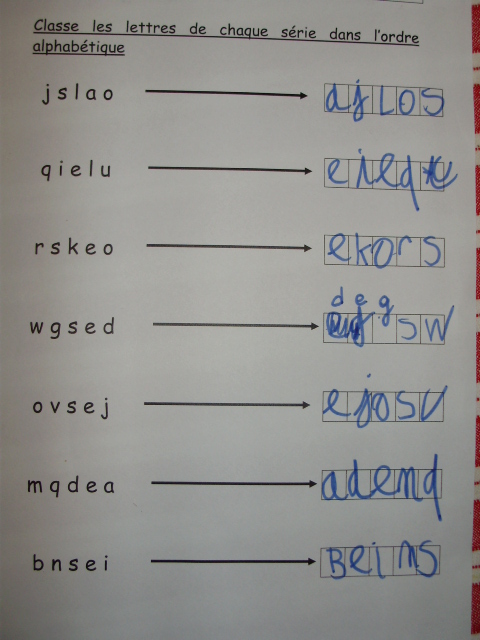 Classe les lettres de chaque série dans l'ordre
alphabétique
j s l a o a j L O S
q i e l u e i l q u
r s k e o e k o r s
d e g
w g s e d s w
o v s e j e j o s v
m q d e a a d e m q
b n s e i B e i n s